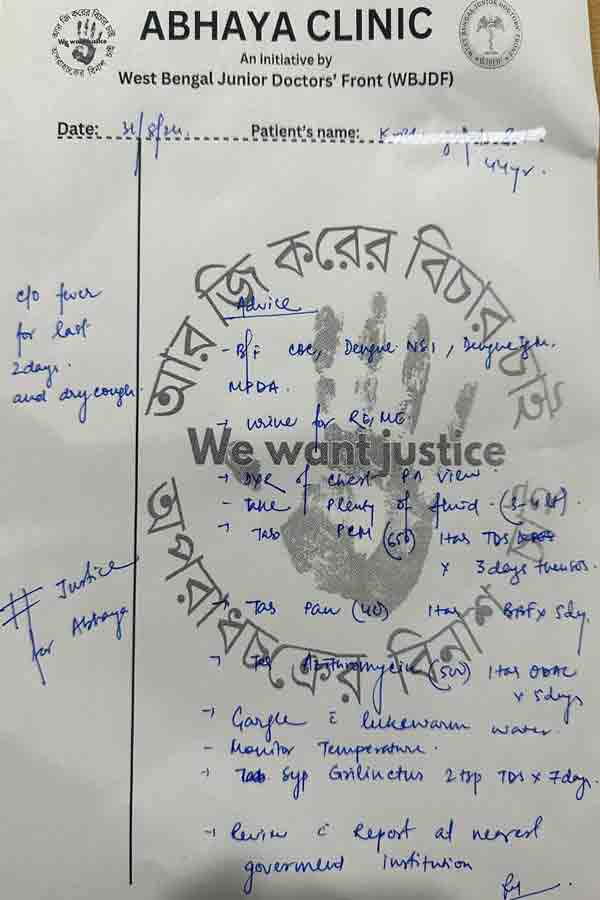 ABHAYA CLINIC
An initiative by
West Bengal Junior Doctors' Front (WBJDF)
আর জি করের বিচার চাই
We want justice
অপরাধচক্রের বিনাশ চাই
WEST BENGAL JUNIOR DOCTORS' FRONT
WBJDF
Date: 31/8/24. Patient's name:
44yr.
c/o fever
for last
2days.
and dry cough.
Advice
- B/F CBC, Dengue NS1, Dengue IgM.
MPDA.
- Urine for RE/ME.
আর জি করের বিচার চাই
We want justice
অপরাধচক্রের বিনাশ চাই
- of chest PA view.
- Take plenty of fluid. (3-4 lit)
- Tab PCM (650) 1 tab TDS
x 3 days then SOS.
- Tab Pan (40) 1 tab BBF x 5dy.
- Tab Azithromycin (500) 1 tab ODAC
x 5days
- Gargle c̄ lukewarm water.
- Monitor Temperature.
- Syp Grilinctus 2 tsp TDS x 7days.
- Review c̄ report at nearest
goverment institution
# Justice
for Abhaya